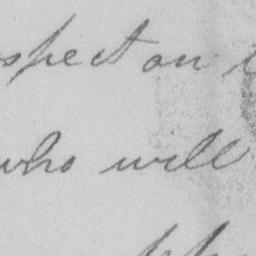 spect an
who will